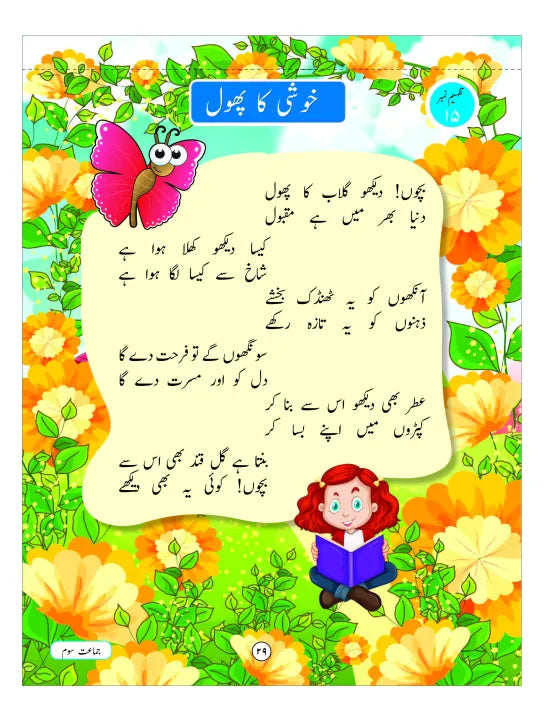 خوشی کا پھول
تفہیم نمبر
۱۵
بچوں! دیکھو گلاب کا پھول
دنیا بھر میں ہے مقبول
کیسا دیکھو کھلا ہوا ہے
شاخ سے کیسا لگا ہوا ہے
آنکھوں کو یہ ٹھنڈک بخشے
ذہنوں کو یہ تازہ رکھے
سونگھوں گے تو فرحت دے گا
دل کو اور مسرت دے گا
عطر بھی دیکھو اس سے بنا کر
کپڑوں میں اپنے بسا کر
بنتا ہے گل قند بھی اس سے
بچوں! کوئی یہ بھی دیکھے
جماعت سوم
۲۹